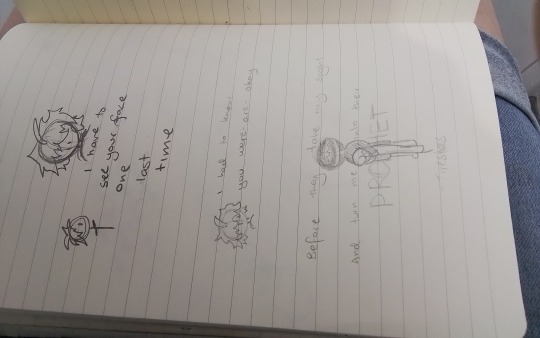 I have to
see your face
one
last
time
I had to know
you were okay
Before they take my eyes
And turn me into their
PROPHET